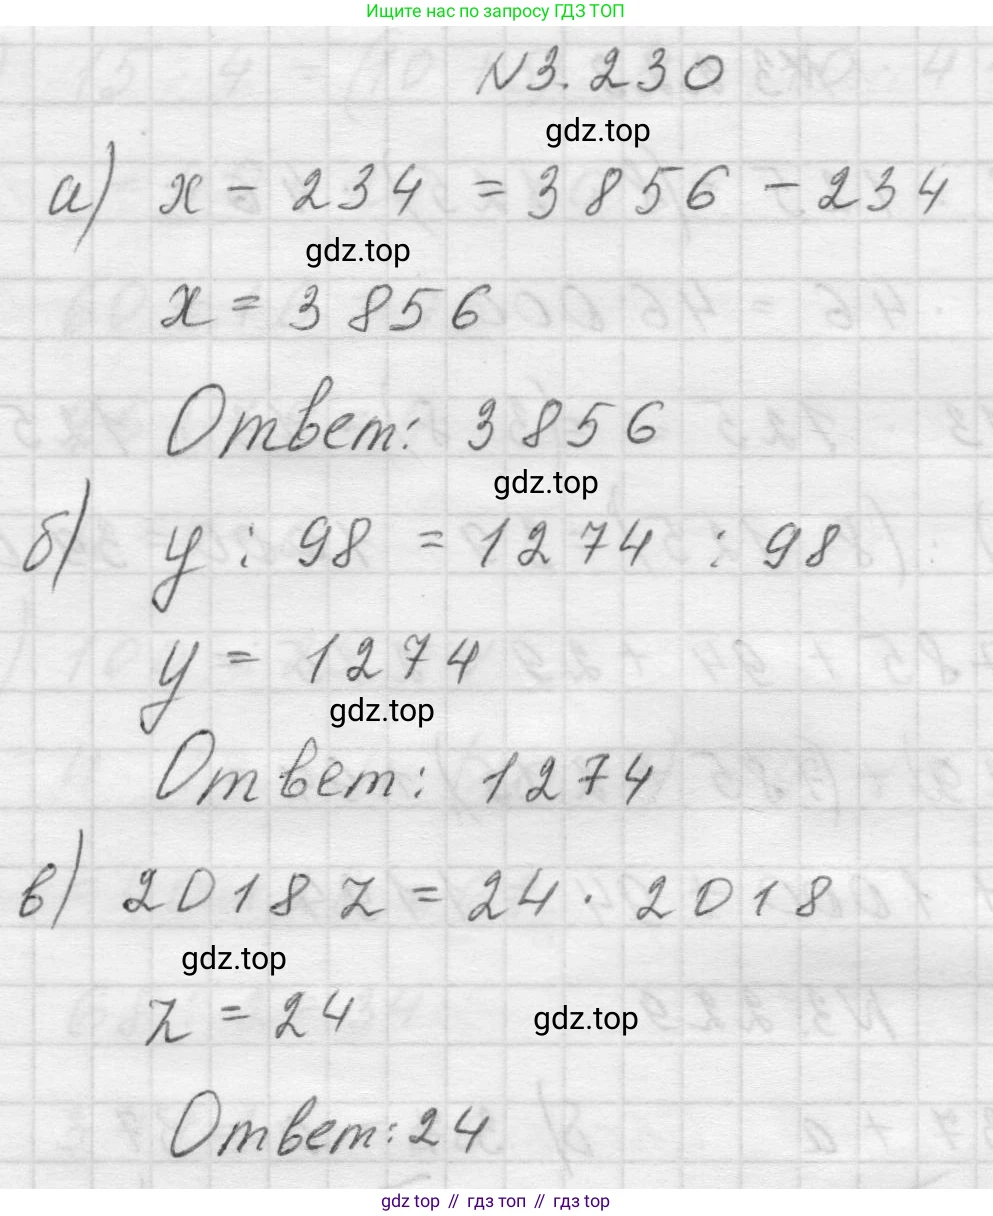 Ищите нас по запросу ГДЗ ТОП
N3.230
gdz.top
а) x - 234 = 3856 - 234
gdz.top
x = 3856
Ответ: 3856
gdz.top
б) y : 98 = 1274 : 98
y = 1274
gdz.top
Ответ: 1274
в) 2018 z = 24 · 2018
gdz.top
z = 24
gdz.top
Ответ: 24
gdz top // гдз топ // gdz top